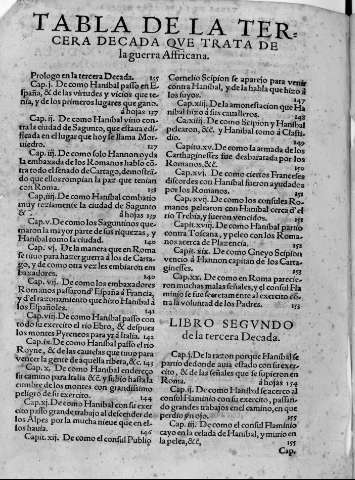 TABLA DE LA TER-
CERA DECADA QVE TRATA DE
la guerra Affricana.
Prologo en la tercera Decada. 135
Cap.j. De como Hanibal passo en Es
paña, & de las virtudes y vicios que te-
nia, y de los primeros lugares que gano.
á hojas 137
Cap. ij. De como Hanibal vino con-
tra la ciudad de Sagunto, que estaua edi-
ficada en el lugar que hoy se llama Mor-
uiedro. 137
Cap. iij. De como solo Hannon oyda
la embaxada de los Romanos hablo cõ
tra todo el senado de Cartago, demostrã
do que ellos rompian la paz que tenian
con Roma. 138
Cap. iiij. De como Hanibal combatio
muy reziamente la ciudad de Sagunto
& á hojas 139
Cap. v. De como los Saguntinos que-
maron la mayor parte de sus riquezas, y
Hanibal tomo la ciudad. 140
Cap. vj. De la manera que en Roma
se tuuo para hazer guerra á los de Carta-
go, y de como otra vez les embiaron em
baxadores. 140
Cap. vij. De como los embaxadores
Romanos passaron d' España á Francia,
y d'el razonamiento que hizo Hanibal á
los Españoles. 141
Cap. viij. De como Hanibal passo con
todo su exercito el rio Ebro, & despues
los montes Pyreneos para yr á Italia.
Cap. ix. De como Hanibal passo el rio
Royne, & de las cautelas que tuuo para
vencer la gente de aquella ribera, &c. 143
Cap. x. De como Hanibal endereço
su camino para Italia &c, y subio hasta la
cumbre de los montes con grandissimo
peligro de su exercito. 144
Cap. xj. De como Hanibal con su exer
cito passo grande trabajo al descender de
los Alpes por la mucha nieue que en el-
los hauia. 146
Capit. xij. De como el consul Publio
Cornelio Scipion se aparejo para venir
contra Hanibal, y de la habla que hizo á
los suyos. 147
Cap. xiij. De la amonestacion que Ha
nibal hizo á sus caualleros. 148
Cap. xiiij. De como Scipion y Hanibal
pelearon, &c. y Hanibal tomo á Clasti-
dio.
Capito. xv. De como la armada de los
Carthaginesses fue desbaratada por los
Romanos, &c.
Cap. xvj. De como ciertos Franceses
discordes con Hanibal fueron ayudados
por los Romanos.
Cap. xvij. De como los consules Ro-
manos pelearon con Hanibal cerca d'el
rio Trebia, y fueron vencidos. 151
Capit. xviij. De como Hanibal partio
contra Toscana, y peleo con los Roma-
nos acerca de Plazencia.
Capit. xix. De como Gneyo Scipion
vencio á Hannon capitan de los Carta-
ginesses.
Cap. xx. De como en Roma parecie-
ron muchas malas señales, y el consul Fla
minio se fue secretamente al exercito cõ-
tra la voluntad de los Padres. 153
LIBRO SEGVNDO
de la tercera Decada.
Cap. j. De la razon porque Hanibal se
partio de donde auia estado con su exer-
cito, & de las señales que se siguieron en
Roma. á hojas 154
Cap. ij. De como Hanibal se acerco al
consul Flaminio con su exercito, passan-
do grandes trabajos en el camino, en que
perdio vn ojo.
Cap. iij. De como el consul Flaminio
cayo en la celada de Hanibal, y murio en
la pelea, &c, 155
Cap.